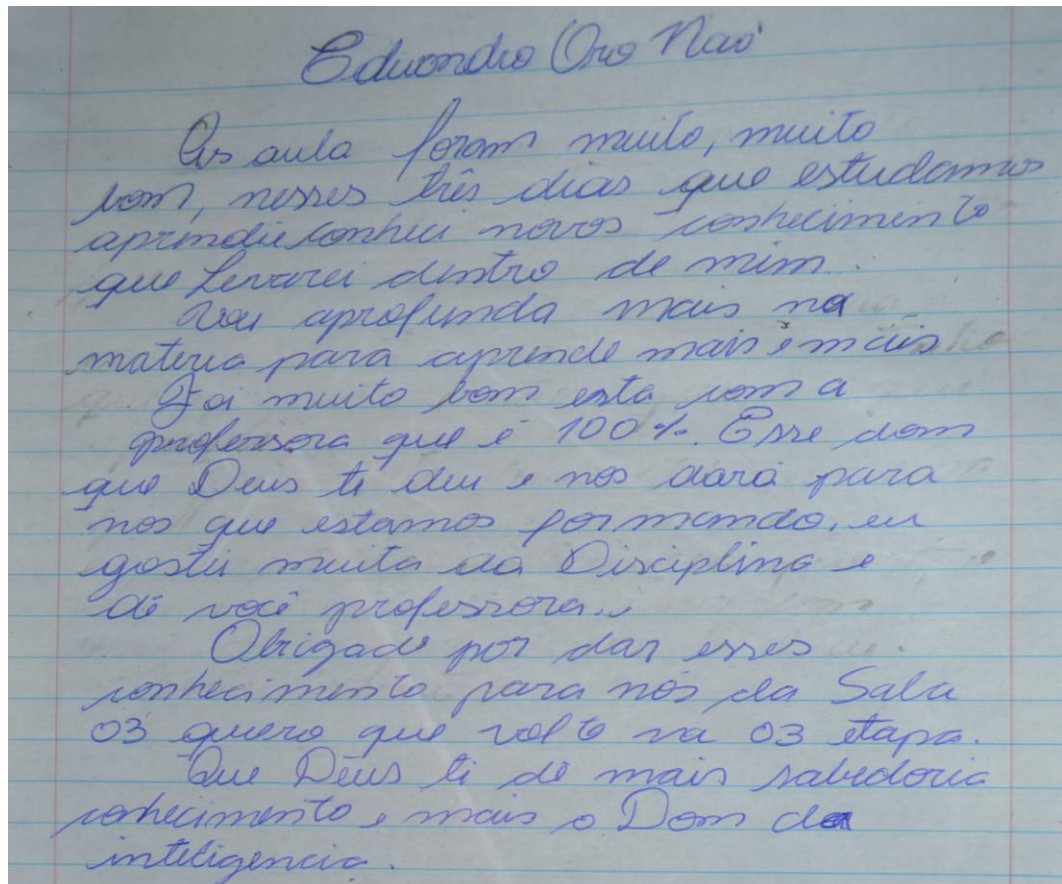 Eduandro Oro Nao'
As aula foram muito, muito
bom, nesses três dias que estudamos
aprendi e conheci novos conhecimento
que levarei dentro de mim.
Vou aprofunda mais na
materia para aprende mais e mais
Foi muito bom esta com a
professora que é 100%. Esse dom
que Deus ti deu e nos dará para
nos que estamos formando, eu
gostei muita da Disciplina e
dê você professora...
Obrigado por dar esses
conhecimento para nós da Sala
03 quero que volte na 03 etapa.
Que Deus ti dê mais sabedoria
conhecimento e mais o Dom da
inteligencia.